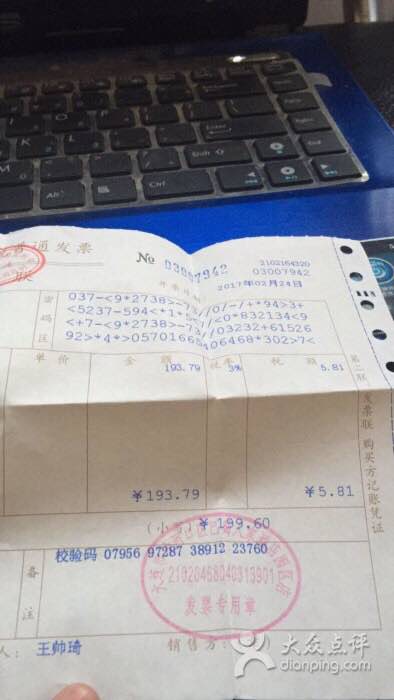 普通发票
№ 03007942
2102164320
03007942
联
开票日期
2017年02月24日
密码区
037-<9*2738>-73//07-/+*94>3+
<5237-594<*1+5</<0*832134<9
<+7-<9*2738>-73//03232+61526
92>*4*>0570166
06468*302>7<
单价
金额
税率
税额
193.79
3%
5.81
¥193.79
¥5.81
(小写)¥199.60
备注
校验码 07956 97287 38912 23760
发票专用章
王帅琦
销售方:
第二联
发票联 购买方记账凭证
大众点评
dianping.com